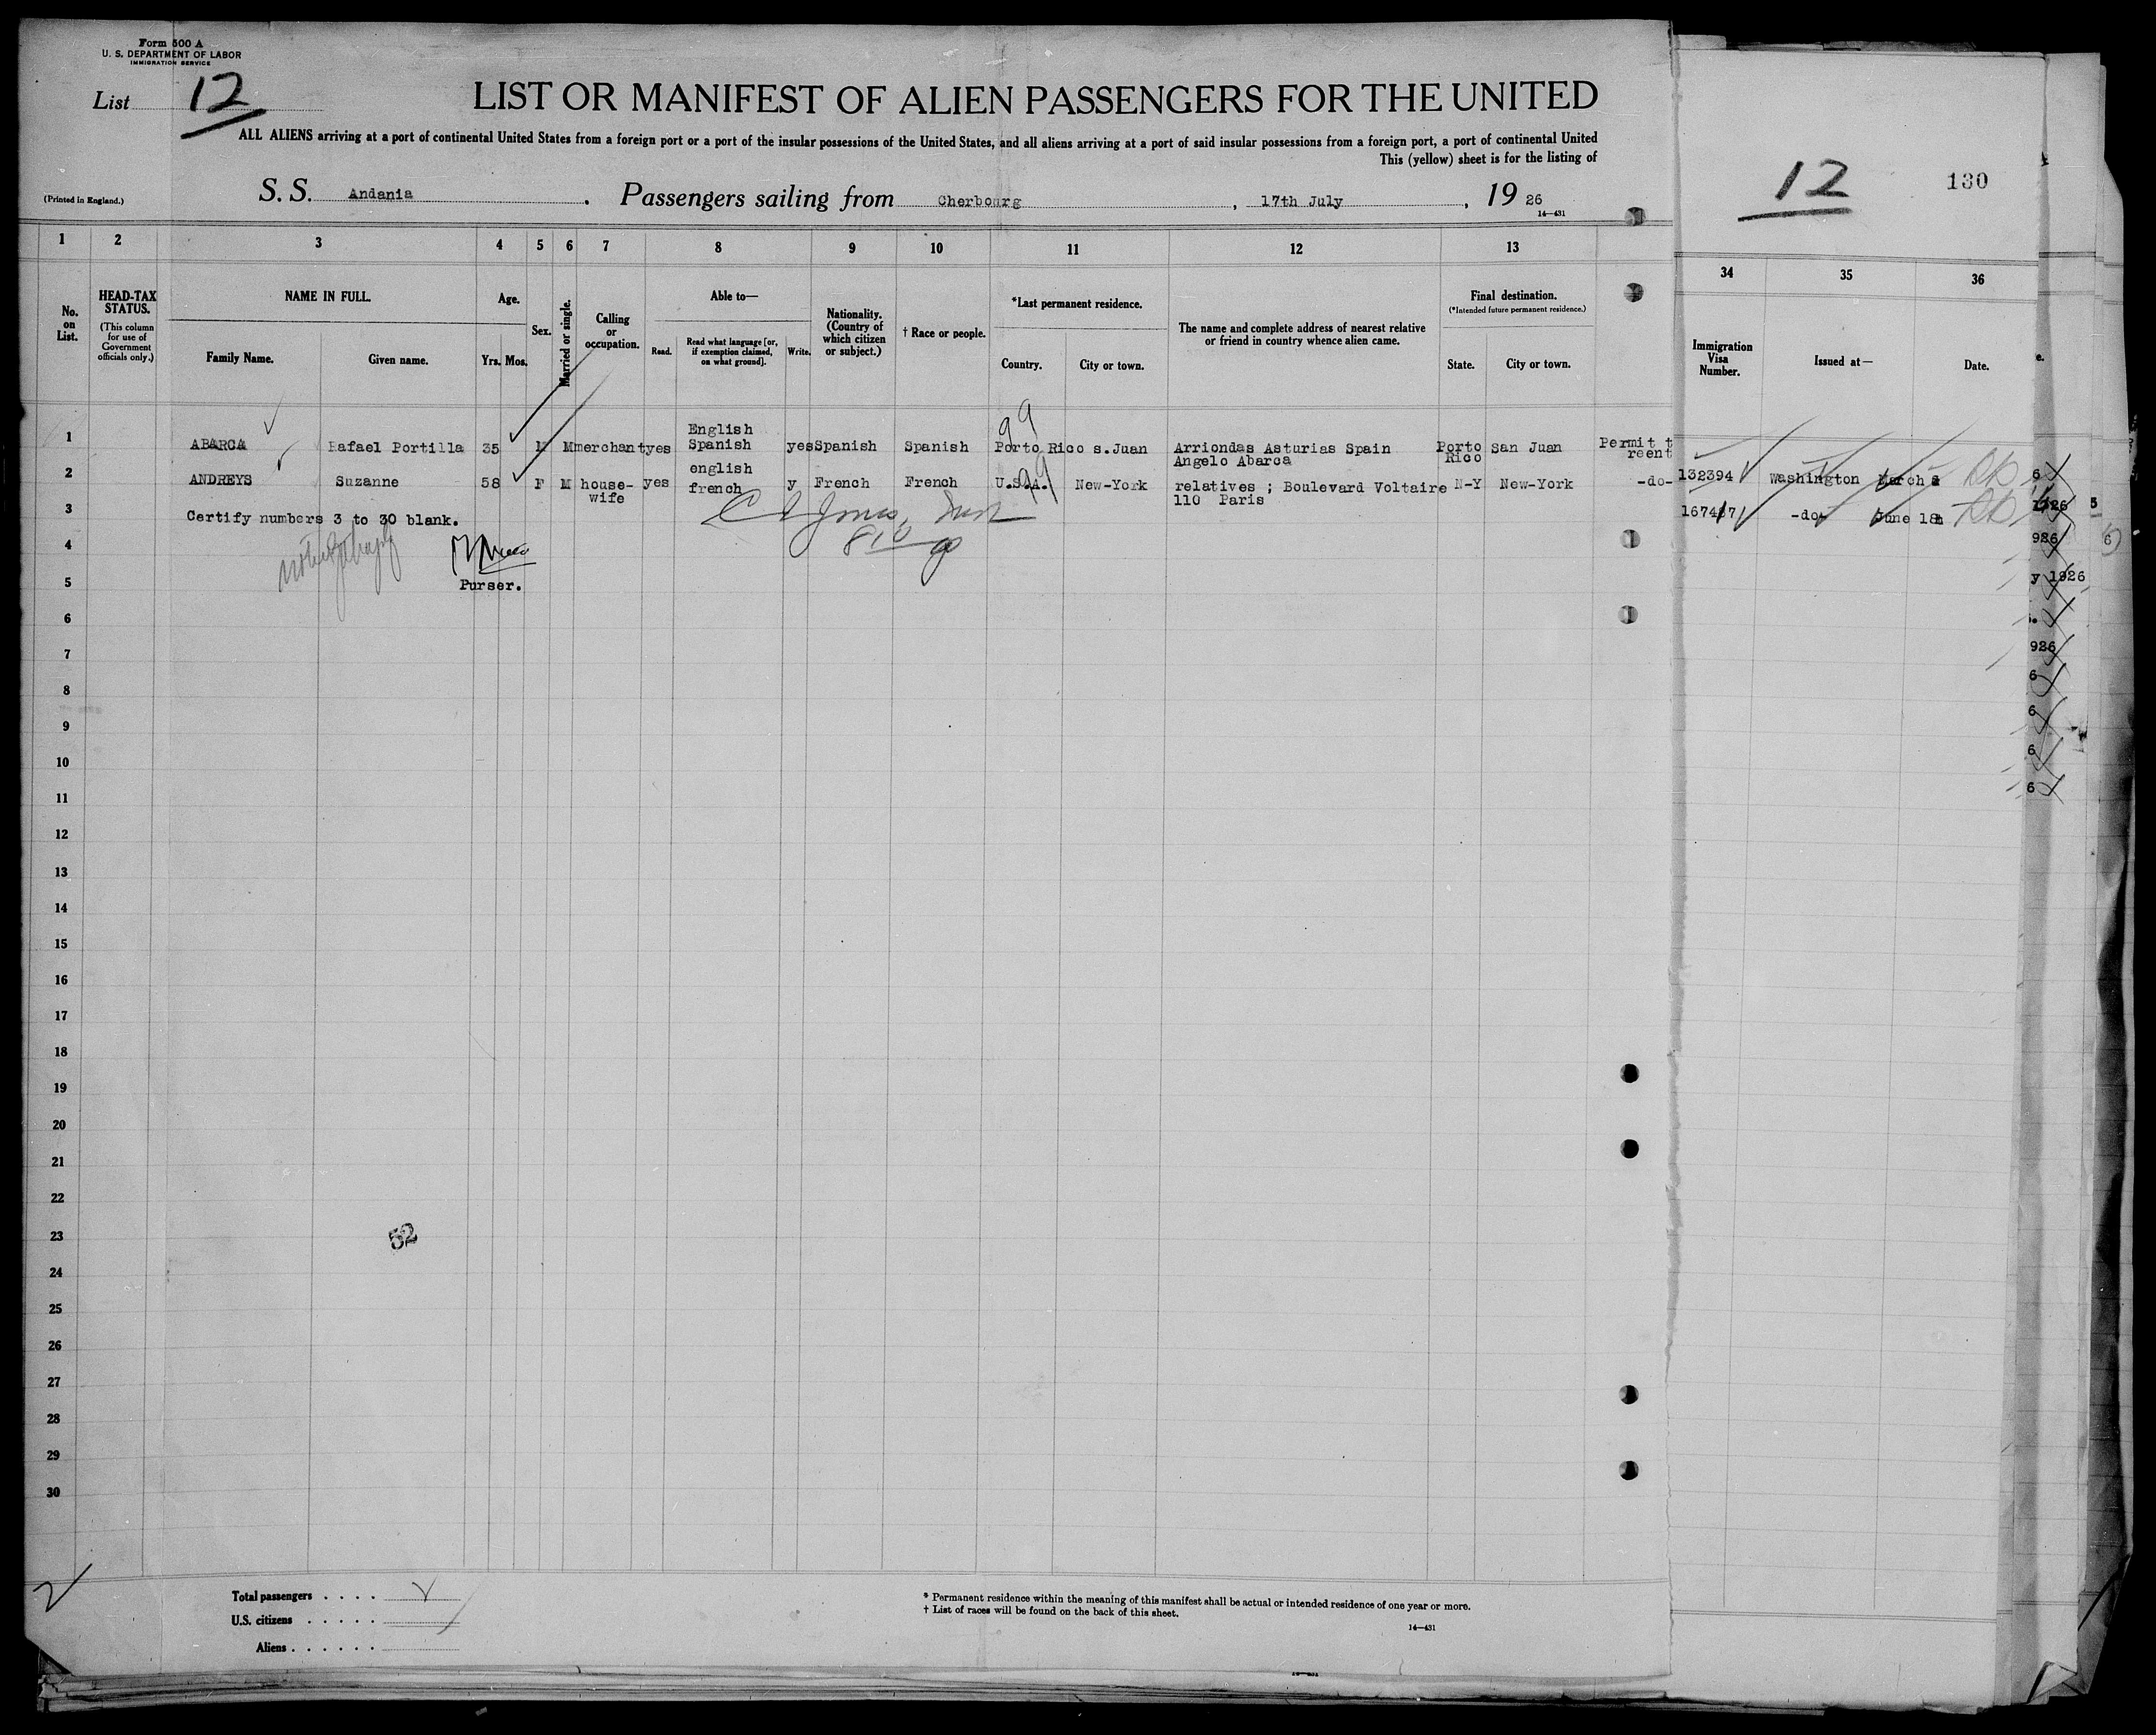 Form 500 A
U. S. DEPARTMENT OF LABOR
IMMIGRATION SERVICE
List 12
LIST OR MANIFEST OF ALIEN PASSENGERS FOR THE UNITED
ALL ALIENS arriving at a port of continental United States from a foreign port or a port of the insular possessions of the United States, and all aliens arriving at a port of said insular possessions from a foreign port, a port of continental United
This (yellow) sheet is for the listing of
(Printed in England.)
S. S. Andania. Passengers sailing from Cherbourg, 17th July, 19 26
14—431
12 130
1 2 3 4 5 6 7 8 9 10 11 12 13
34 35 36
No. on List.
HEAD-TAX STATUS.
(This column for use of Government officials only.)
NAME IN FULL.
Family Name. Given name.
Age.
Yrs. Mos.
Sex.
Married or single.
Calling or occupation.
Able to—
Read. Read what language [or, if exemption claimed, on what ground]. Write.
Nationality. (Country of which citizen or subject.)
† Race or people.
*Last permanent residence.
Country. City or town.
The name and complete address of nearest relative or friend in country whence alien came.
Final destination.
(*Intended future permanent residence.)
State. City or town.
Immigration Visa Number.
Issued at—
Date.
e.
1 ABARCA Rafael Portilla 35 M M merchant yes English Spanish yes Spanish Spanish Porto Rico s.Juan Arriondas Asturias Spain Angelo Abarca Porto Rico San Juan Permit t reent
132394 Washington March
2 ANDREYS Suzanne 58 F M house-wife yes english french y French French U.S.A. New-York relatives ; Boulevard Voltaire 110 Paris N-Y New-York -do-
-do- June 18
99
99
3 Certify numbers 3 to 30 blank.
4
5 Purser.
6
7
8
9
10
11
12
13
14
15
16
17
18
19
20
21
22
23 52
24
25
26
27
28
29
30
6
1926 5
926 6
y 1926
926
6
6
6
6
2
Total passengers . . . .
U.S. citizens . . . . .
Aliens . . . . . .
* Permanent residence within the meaning of this manifest shall be actual or intended residence of one year or more.
† List of races will be found on the back of this sheet.
14—431